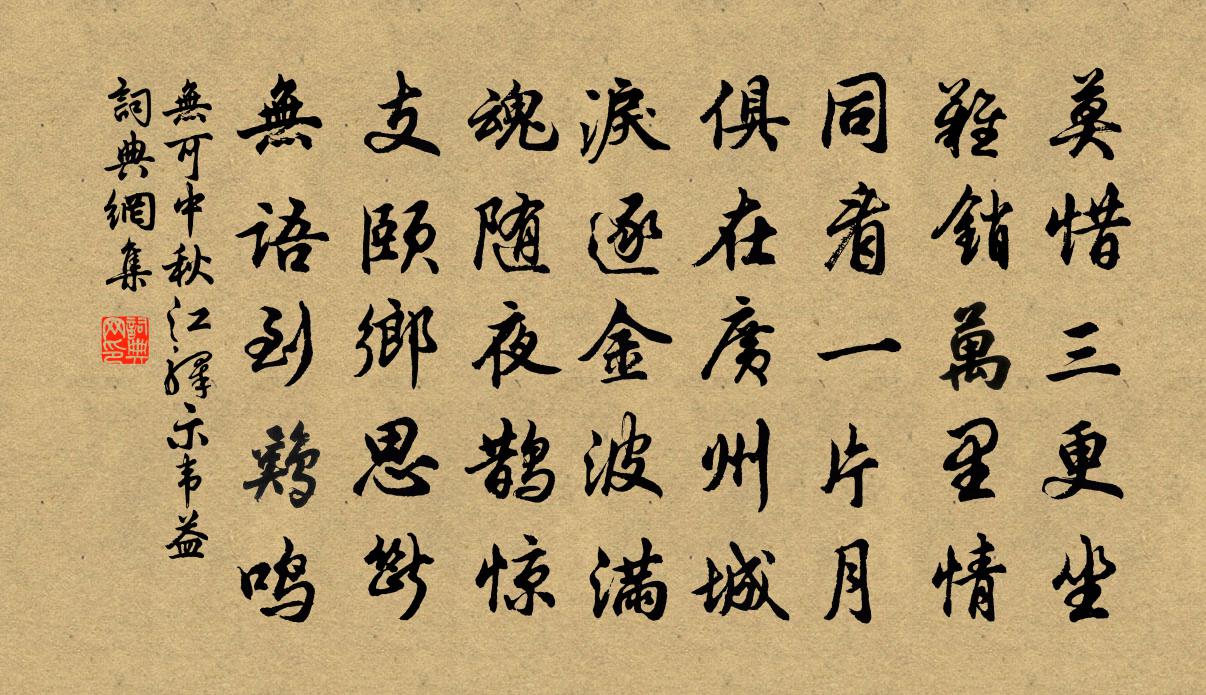 莫惜三更坐
難銷萬里情
同看一片月
俱在廣州城
淚逐金波滿
魂随夜鵲惊
支頤鄉思斷
無語到鷄鳴
無可中秋江驛示韦益
詞典網集
詞典网印